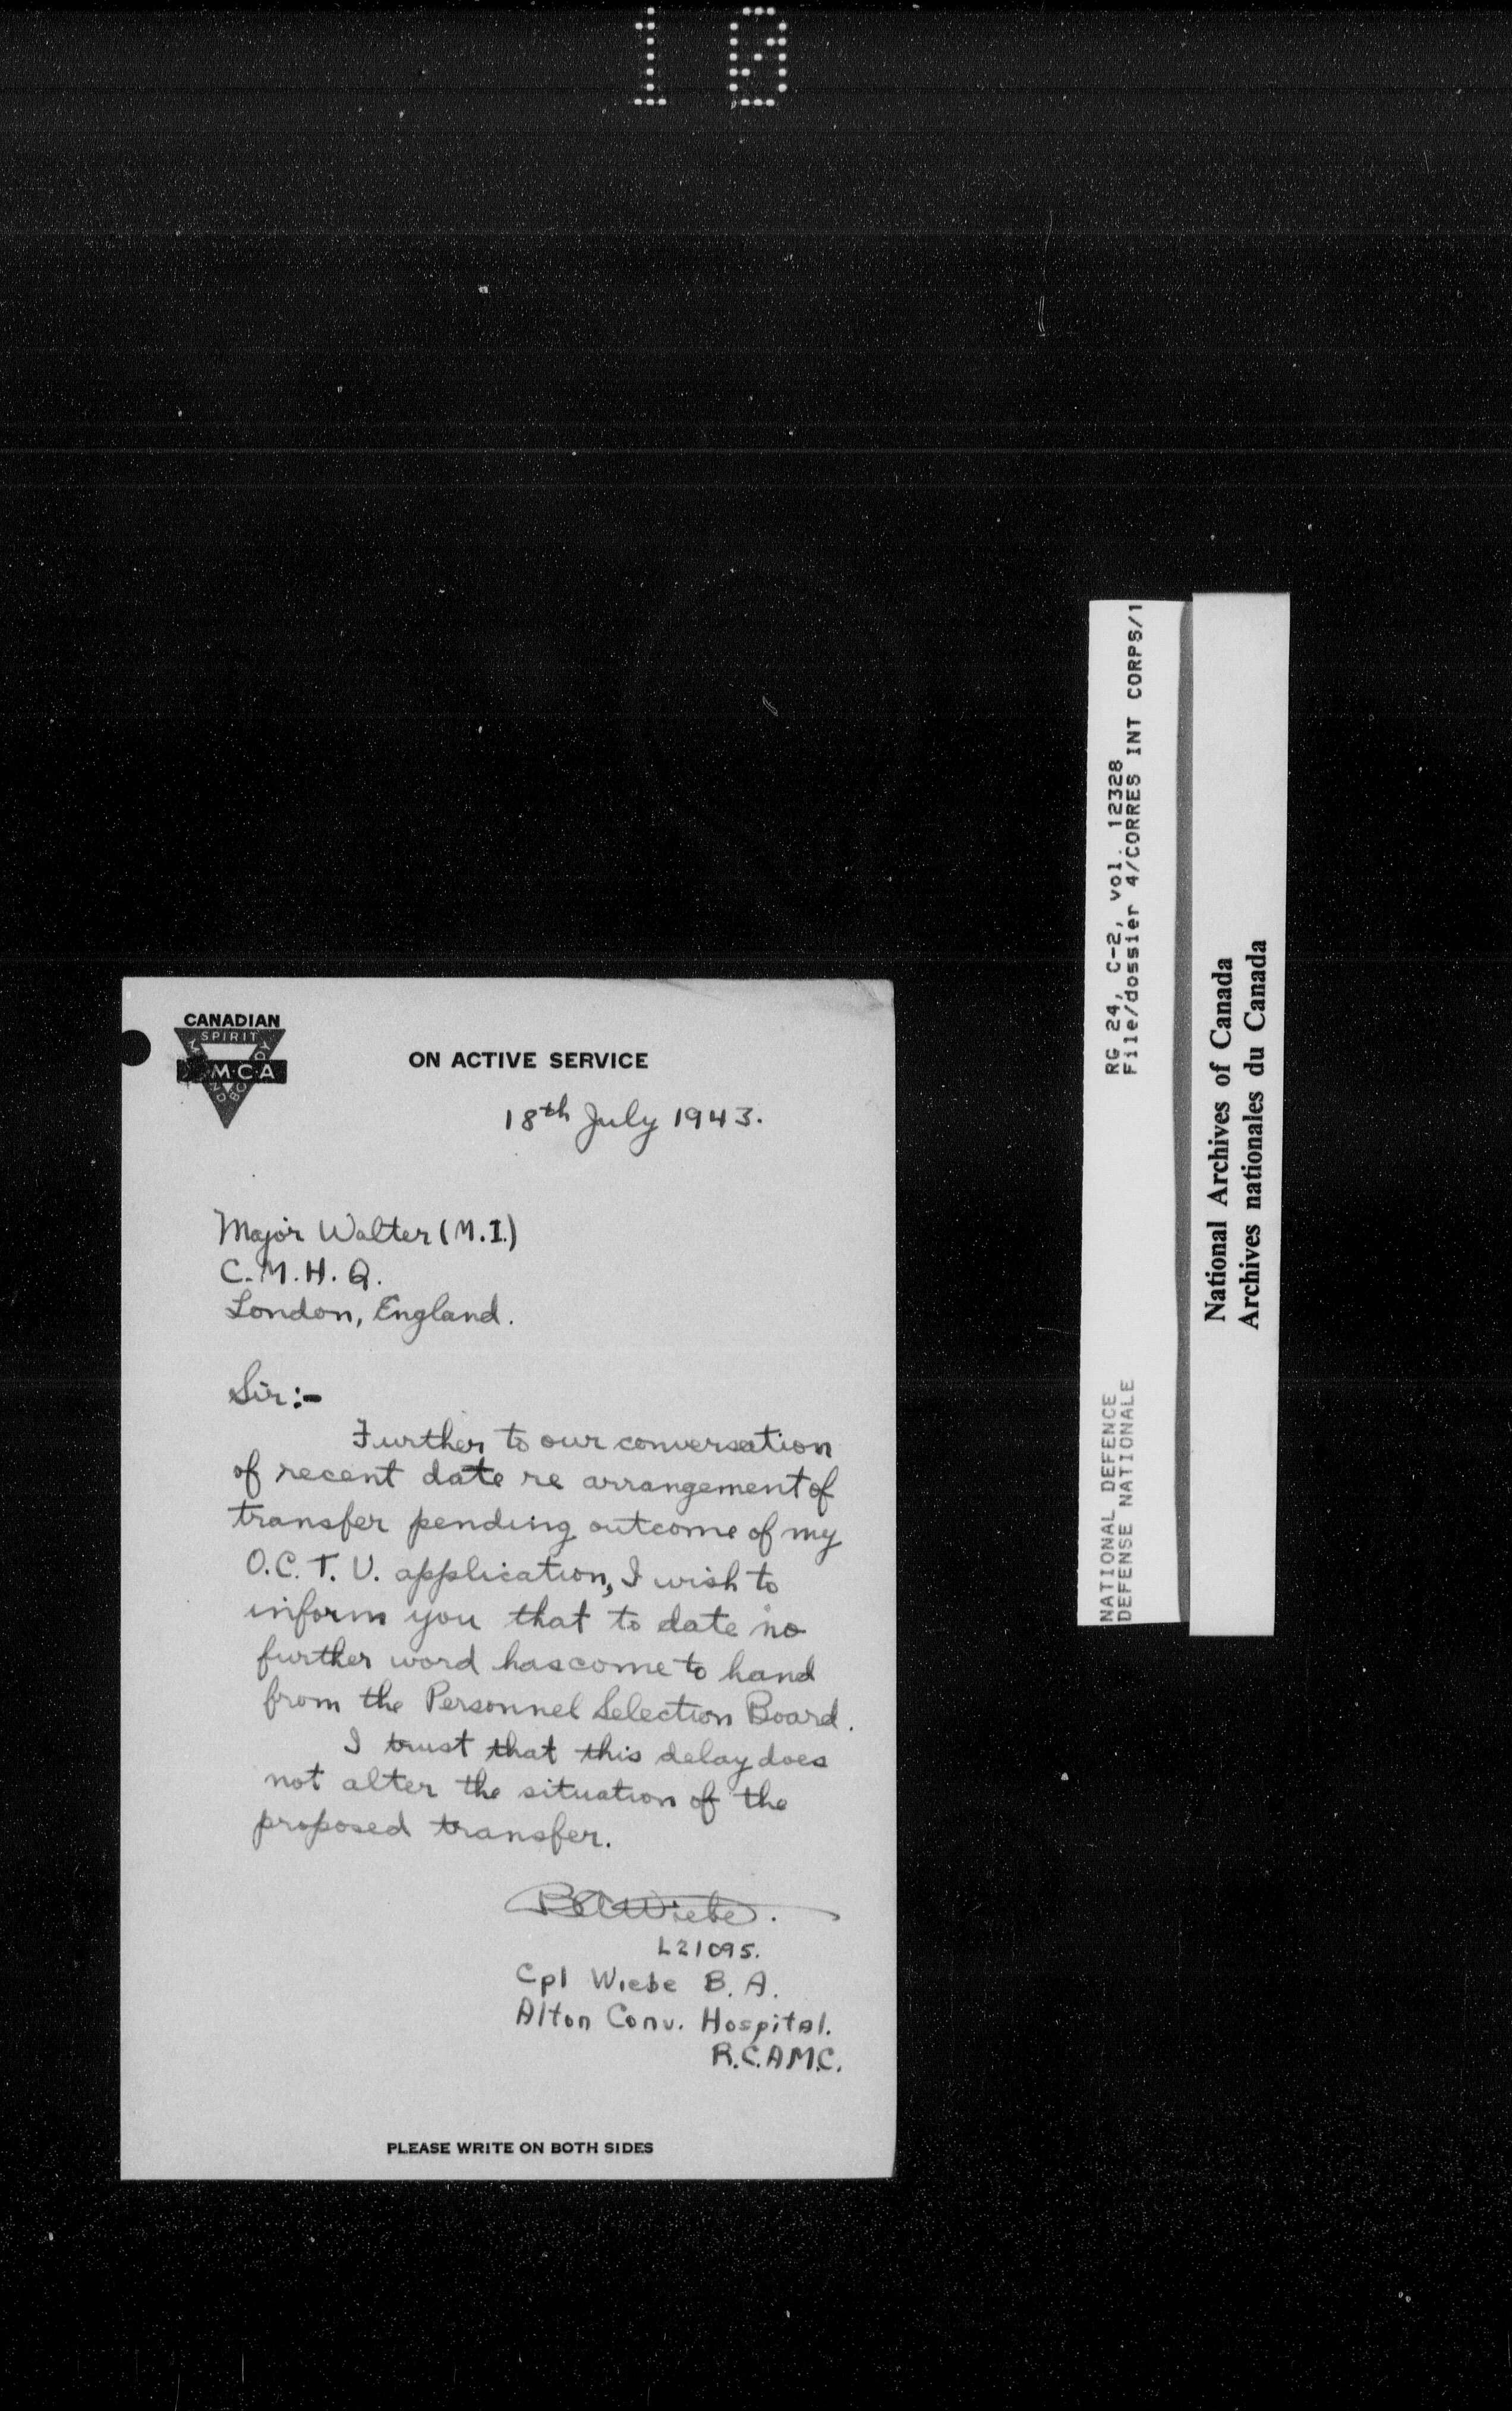 10
CANADIAN
SPIRIT
MIND
BODY
Y.M.C.A
ON ACTIVE SERVICE
18th July 1943.
Major Walter (M.I.)
C.M.H.Q.
London, England.
Sir:-
Further to our conversation
of recent date re arrangement of
transfer pending outcome of my
O.C.T.U. application, I wish to
inform you that to date no
further word has come to hand
from the Personnel Selection Board.
I trust that this delay does
not alter the situation of the
proposed transfer.
BAWiebe.
L21095.
Cpl Wiebe B. A.
Alton Conv. Hospital.
R.C.A.M.C.
PLEASE WRITE ON BOTH SIDES
RG 24, C-2, vol. 12328
File/dossier 4/CORRES INT CORPS/1
NATIONAL DEFENCE
DEFENSE NATIONALE
National Archives of Canada
Archives nationales du Canada